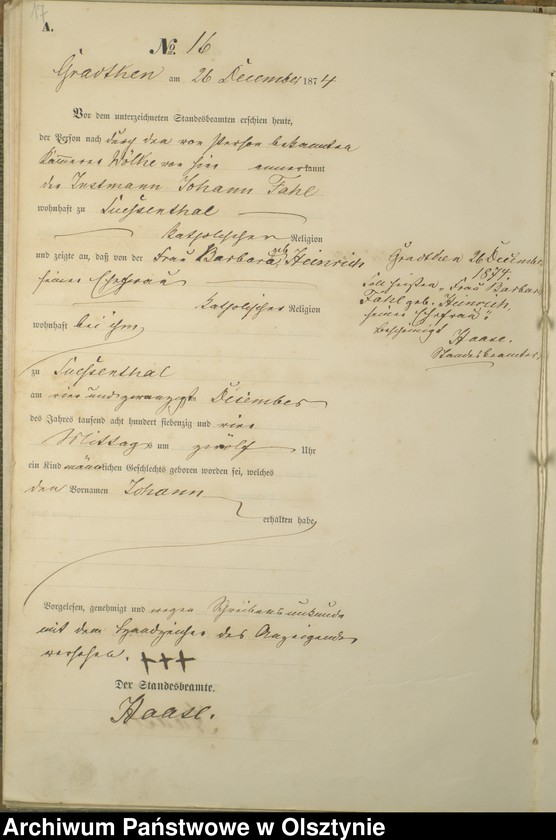 17
A.
№ 16
Gradtken am 26 December 1874
Vor dem unterzeichneten Standesbeamten erschien heute,
der Person nach durch den von Person bekannten
Kämmerer Wölke von hier anerkannt
der Instmann Johann Fahl
wohnhaft zu Fuchsenthal
katholischer Religion
und zeigte an, daß von der Frau Barbara geb. Heinrich
seiner Ehefrau
katholischer Religion
wohnhaft bei ihm
zu Fuchsenthal
am vier und zwanzigst December
des Jahres tausend acht hundert siebenzig und vier
Mittags um zwölf Uhr
ein Kind männlichen Geschlechts geboren worden sei, welches
den Vornamen Johann
erhalten habe
Vorgelesen, genehmigt und wegen Schreibensunkunde
mit dem Handzeichen des Anzeigenden
versehen. +++
Der Standesbeamte.
Haase.
Gradtken 26 December
1874.
Soll heißen „Frau Barbara
Fahl geb. Heinrich,
seiner Ehefrau“.
bescheinigt
Haase.
Standesbeamter.
Archiwum Państwowe w Olsztynie